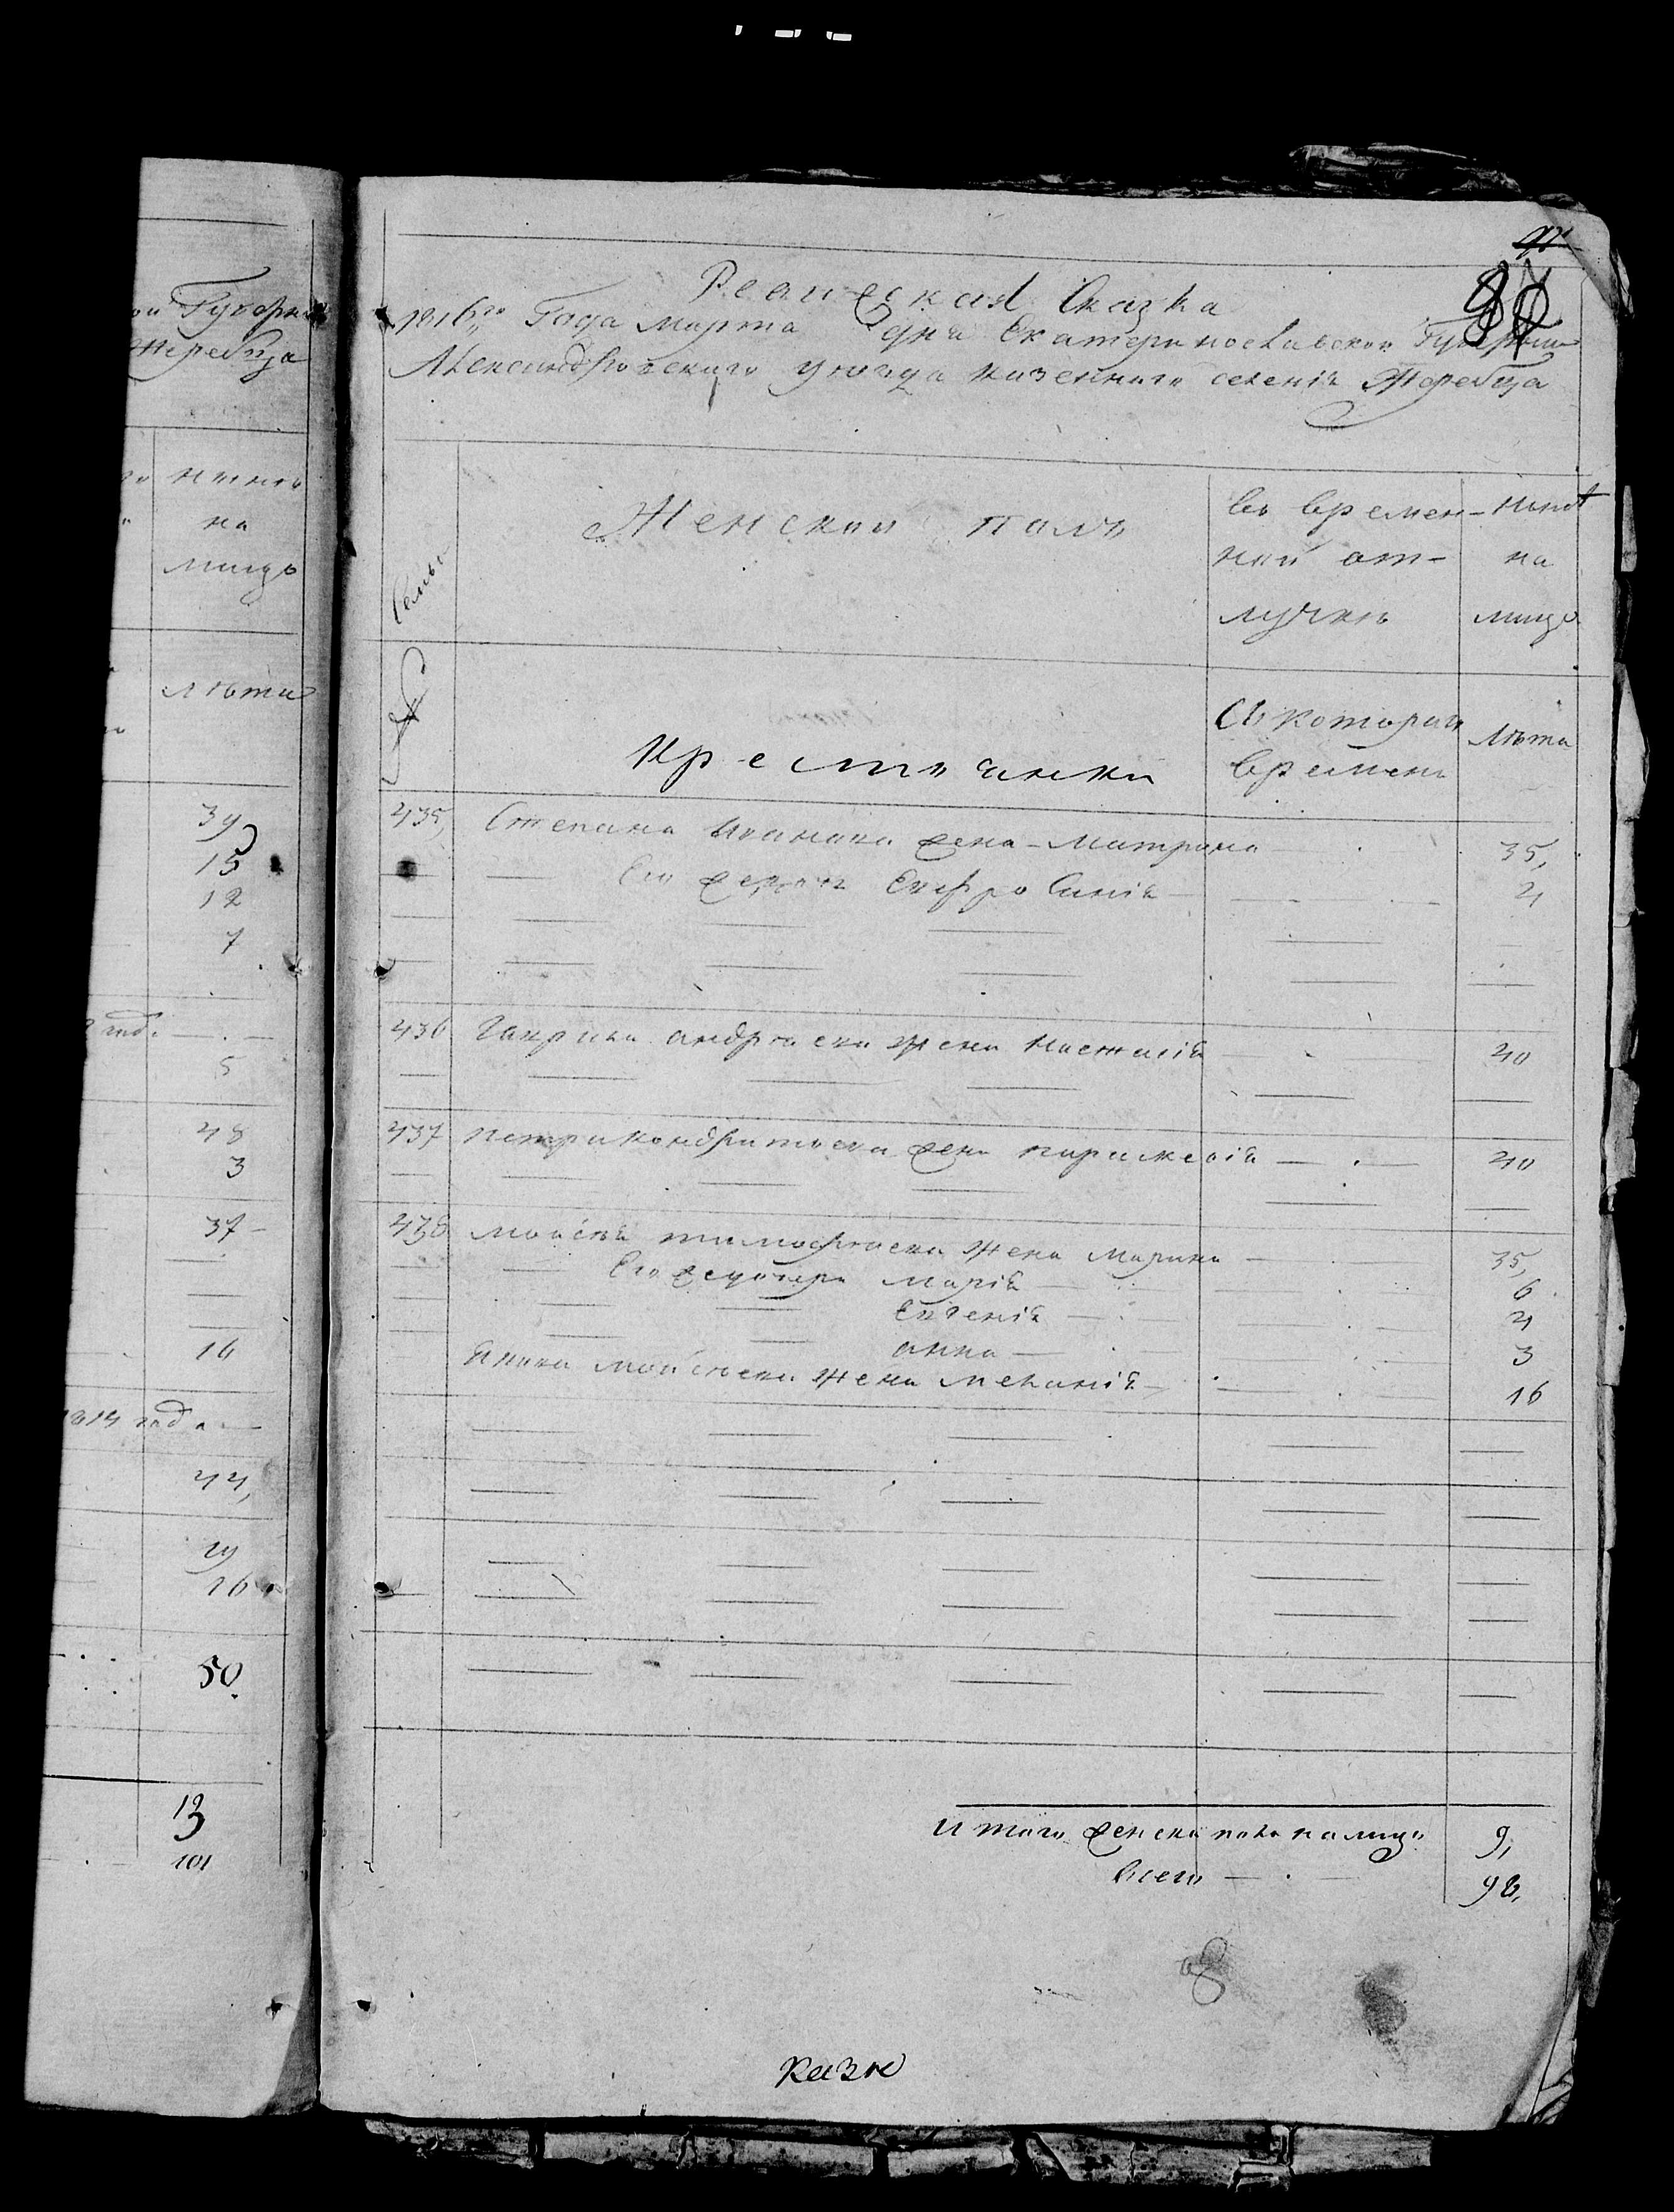 ой Губерніи
Жеребца
нынѣ
на
лицо
лѣта
39
15
12
7
год.
5
48
3
37
16
1814 года
44,
29
16
50.
13
101
Ревижская Сказка
1816го Года марта дня Екатеринославской Губерніи
Александровскаго уезда казеннаго селенія Жеребца
Семьи
Женской полъ
во времен-
ной от-
лучкѣ
Нынѣ
на
лицо
№
Крестьянки
Съ котораго
времени
Лѣта
435, Степана Иванова жена Матрона 35,
Его Евфросинія 4
436 Гаврила андреева жена Настасія 40
437 петра кондратьева жена параскевія 40
438 моисея тимофѣева жена марина 35,
Его дочери марія 6
Евгенія 4
анна 3
Якова моисѣева жена меланія 16
Итого женска пола налицо 9,
всего 98,
казн